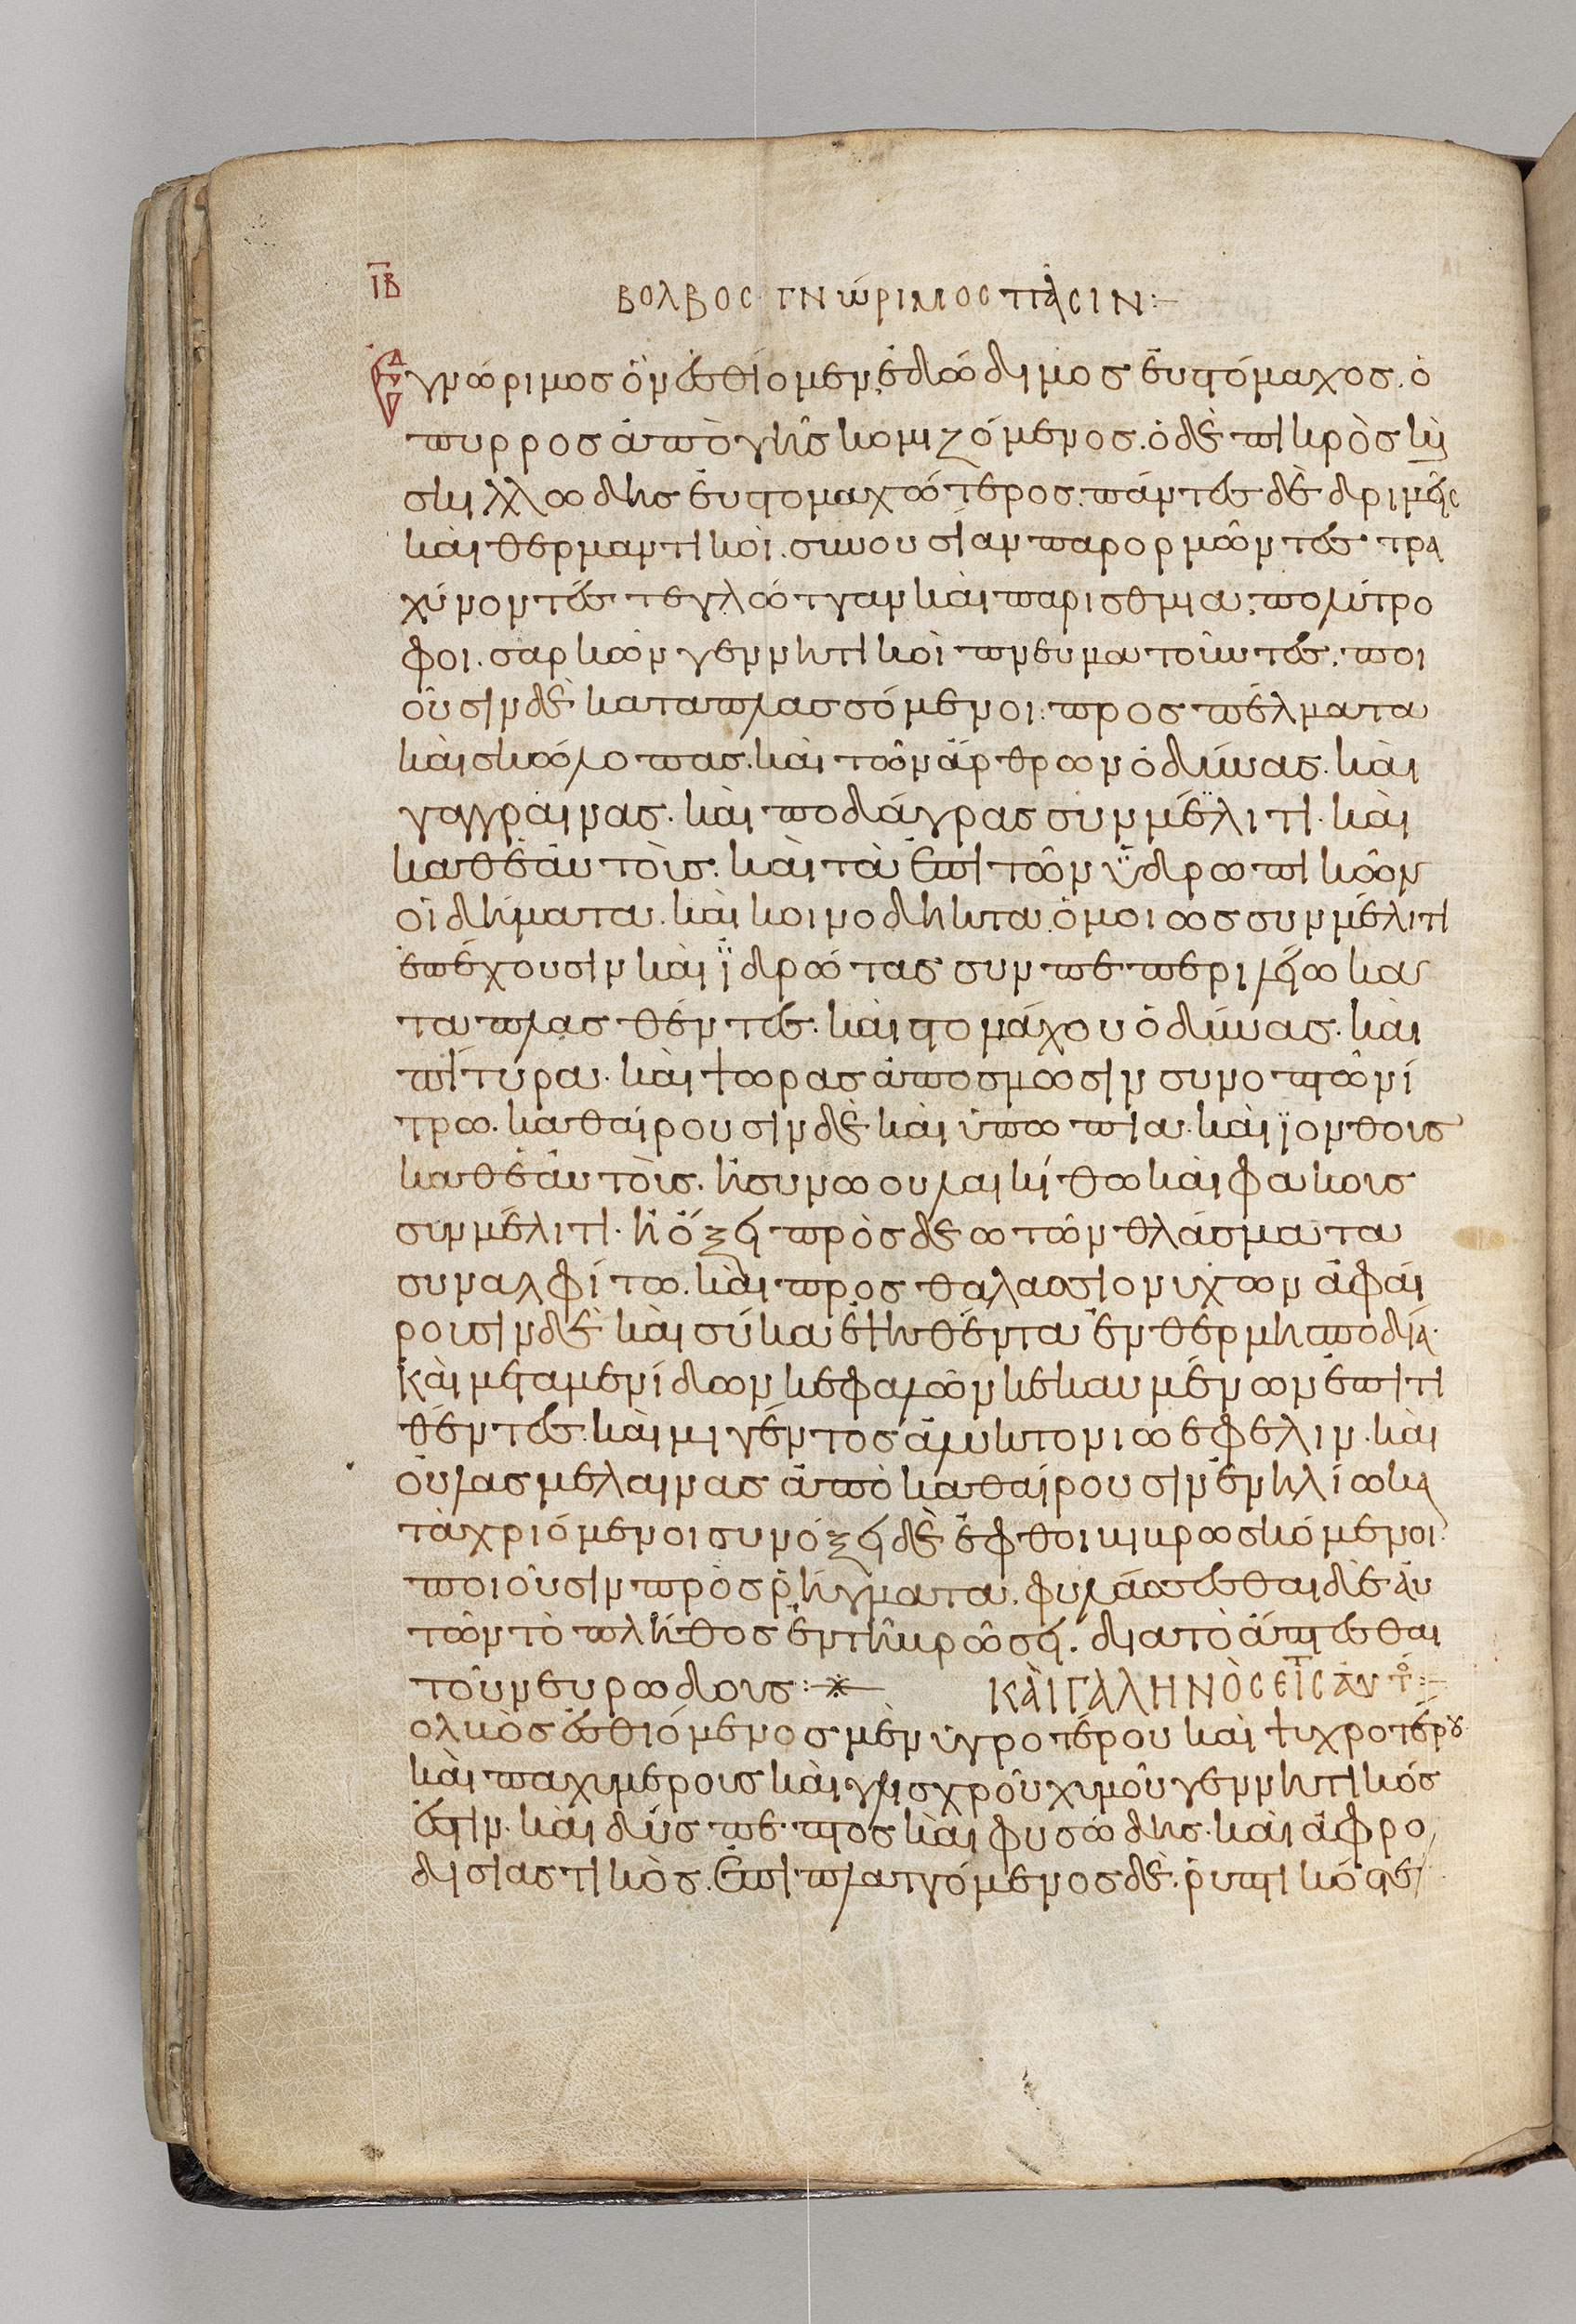 ΙΒ
ΒΟΛΒΟC ΓΝώΡΙΜΟC ΠᾶCΙΝ :–
Εὐγνώριμος ὃν ἐσθίομεν ἐδώδιμος εὐστόμαχος. ὁ
πυρρος ἀπὸ γῆς κομιζόμενος. ὁ δὲ πικρὸς κὶ
σκιλλώδης εὐστομαχώτερος. πάντες δὲ δριμεῖς
καὶ θερμαντικοὶ. συνουσίαν παρορμῶντες τρα
χύνοντές τε γλώτταν καὶ παρισθμια. πολύτρο
φοι. σαρκῶν γεννητικοὶ πνευματοῦντες. ποι
οῦσιν δὲ καταπλασσόμενοι: προς πέλματα
καὶ σκώλοπας. καὶ τῶν ἄρθρων ὀδύνας. καὶ
γαγγραινας. καὶ ποδάγρας συν μέλιτι. καὶ
καθ ἑαυτοὶς. καὶ τὰ ἐπὶ τῶν ὑδρωπικῶν
οἰδήματα. καὶ κοινοδηκτα. ὁμοιως συν μέλιτι
ἐπέχουσιν καὶ ἱδρώτας συν πεπέρι λείω κα
ταπλασθέντες. καὶ στομάχου ὀδύνας. καὶ
πίτυρα. καὶ ψωρας ἀποσμωσιν συν οπτῶ νί
τρω. καθαίρουσιν δὲ καὶ ὑπωπια. καὶ ἰονθους
καθ ἑαυτοὶς. ἢ συν ωου λακίθω καὶ φακους
συν μέλιτι. ἢ ὄξει πρὸς δε ωτῶν θλάσματα
συν αλφίτω. καὶ προς θαλασσιονυχων ἀφαί
ρουσιν δὲ καὶ σύκα ἐψηθέντα ἐν θέρμη σποδία.
Καὶ μεταμενίδων κεφαλῶν κεκαυμένων ἐπιτι
θέντες. καὶ μιγέντος ἀλυκτονιω εφελιν. καὶ
οὐλας μελαινας ἀποκαθαίρουσιν ἐν ηλίω κα
τὰχριόμενοι συν όξει δὲ ἐφθοι κικρωσκόμενοι.
ποιοῦσιν πρὸς ῥήγματα. φυλάσσεσθαι δὲ αὐ
τῶν τὸ πλῆθος ἐν τῆ κρώσει. διατὸ ἅπτεσθαι
τοῦ νευρωδους :–※— ΚΑῚ ΓΑΛΗΝῸC ΕἸC ΑΥΤ :–
ολκὸς ἐσθιόμενος μὲν ὑγροτέρου καὶ ψυχροτέρου
καὶ παχυμερους καὶ γλισχροῦ χυμοῦ γεννητικός
ἐστιν. καὶ δύσπεπτος καὶ φυσώδης. καὶ ἀφρο
δισιαστικὸς. ἐπιπλαττόμενος δὲ. ῥυπτικός τε